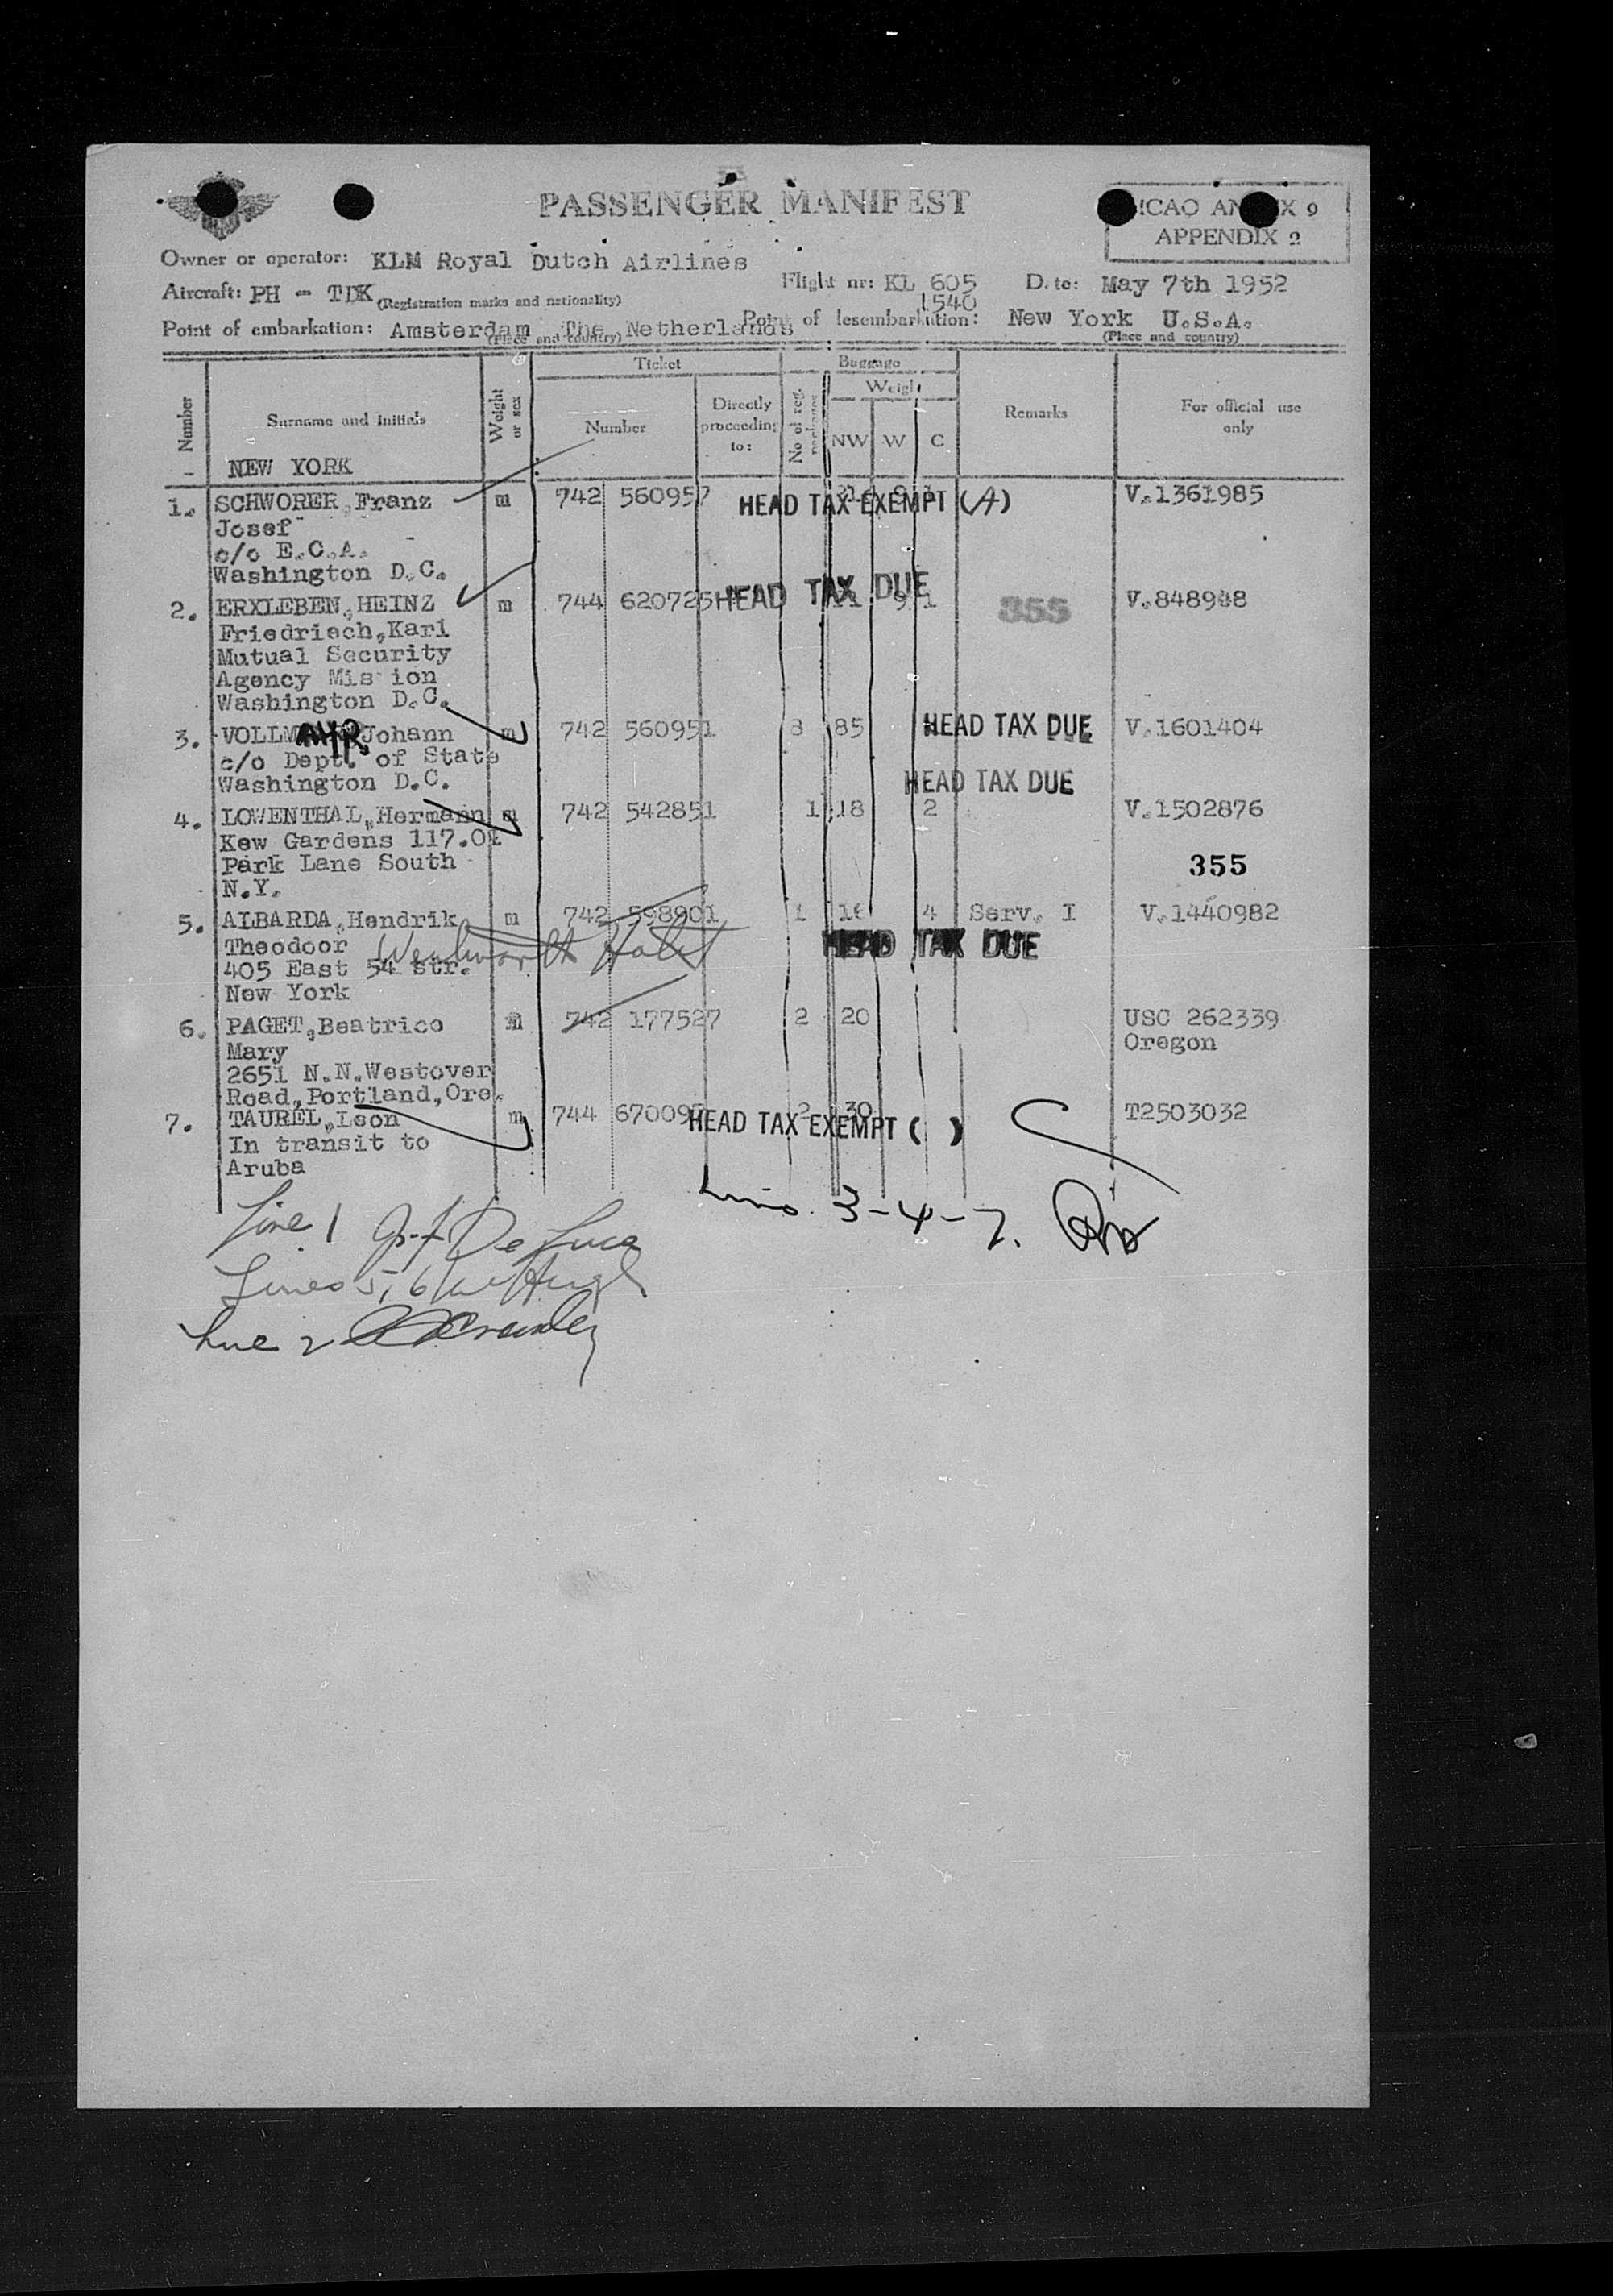 PASSENGER MANIFEST
ICAO ANNEX 9
APPENDIX 2
Owner or operator: KLM Royal Dutch Airlines
Flight nr: KL 605 Date: May 7th 1952
Aircraft: PH - TDK (Registration marks and nationality)
1540
Point of embarkation: Amsterdam The Netherlands Point of desembarkation: New York U.S.A.
(Place and country) (Place and country)
Number Surname and initials Weight or sex Ticket Number Directly proceeding to: Baggage No of reg. Weight NW W C Remarks For official use only
- NEW YORK
1. SCHWORER, Franz m 742 560957 HEAD TAX EXEMPT (A) V.1361985
Josef
c/o E.C.A.
Washington D.C.
2. ERXLEBEN, HEINZ m 744 620725 HEAD TAX DUE 9 1 355 V.848948
Friedriech, Karl
Mutual Security
Agency Mis ion
Washington D.C.
3. VOLLMAYR Johann m 742 560951 3 85 HEAD TAX DUE V.1601404
c/o Dept. of State
Washington D.C.
HEAD TAX DUE
4. LOWENTHAL, Hermann m 742 542851 1 18 2 V.1502876
Kew Gardens 117.01
Park Lane South 355
N.Y.
5. ALBARDA, Hendrik m 742 598901 1 16 4 Serv. I V.1440982
Theodoor Wentworth Hotel HEAD TAX DUE
405 East 54 str.
New York
6. PAGET, Beatrice m 742 177527 2 20 USC 262339
Mary Oregon
2651 N.N.Westover
Road, Portland, Ore.
7. TAUREL, Leon m 744 67009 2 30 T2503032
HEAD TAX EXEMPT ( )
In transit to
Aruba
Lines 3-4-7.
Line 1 J. F. De Luca
Lines 5, 6
Line 2